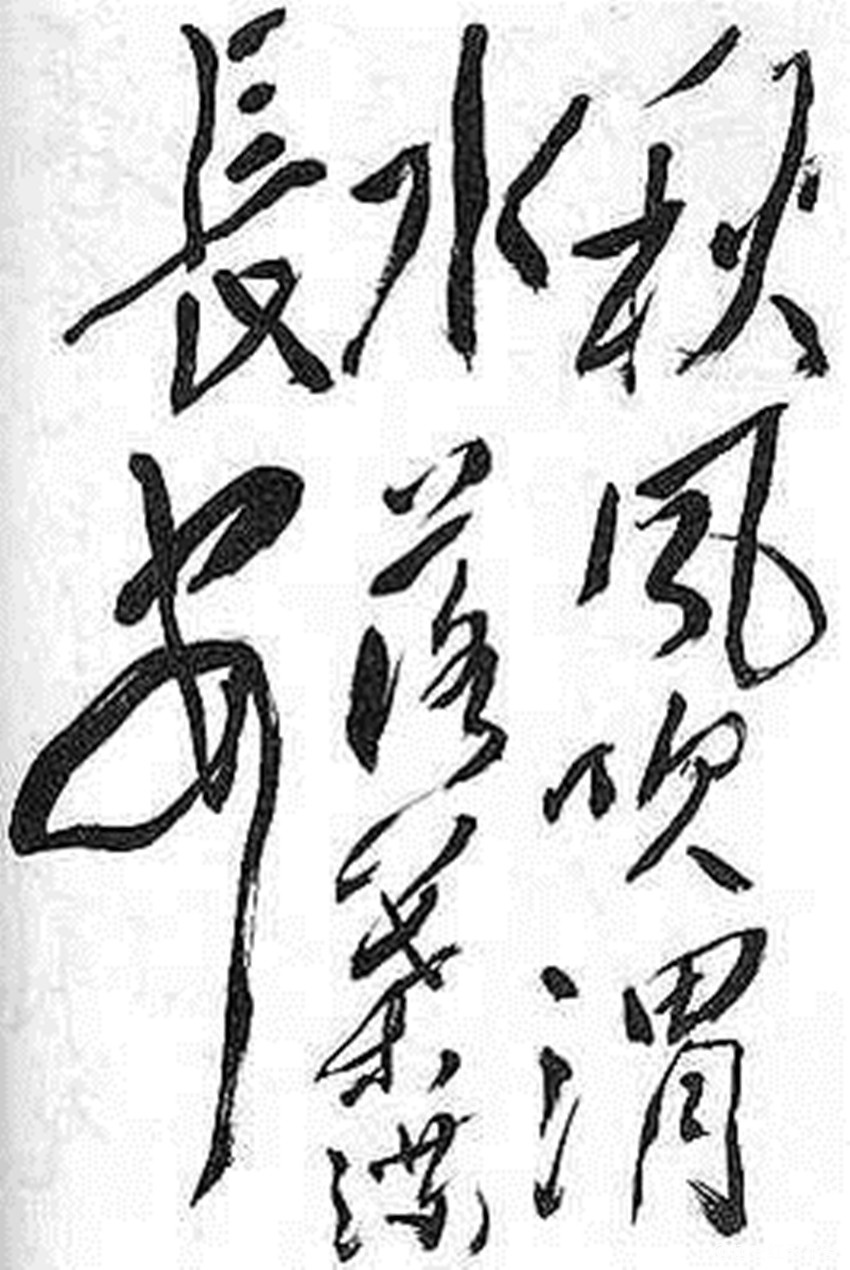 秋風吹渭
水落葉滿
長安